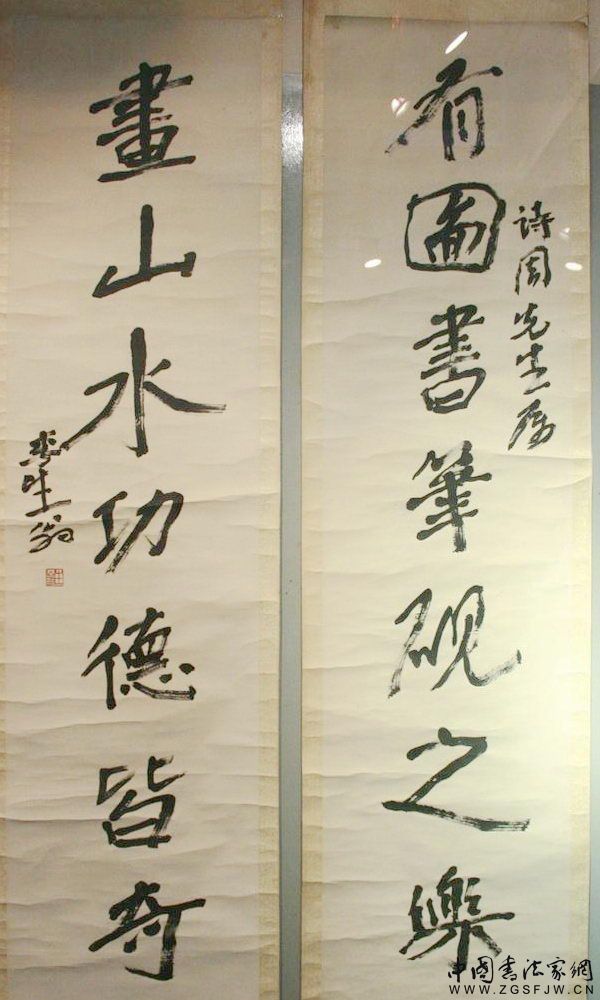 有圖書筆硯之樂
詩周先生屬
畫山水功德皆奇
李生翁
中国書法家網
WWW.ZGSFJW.CN